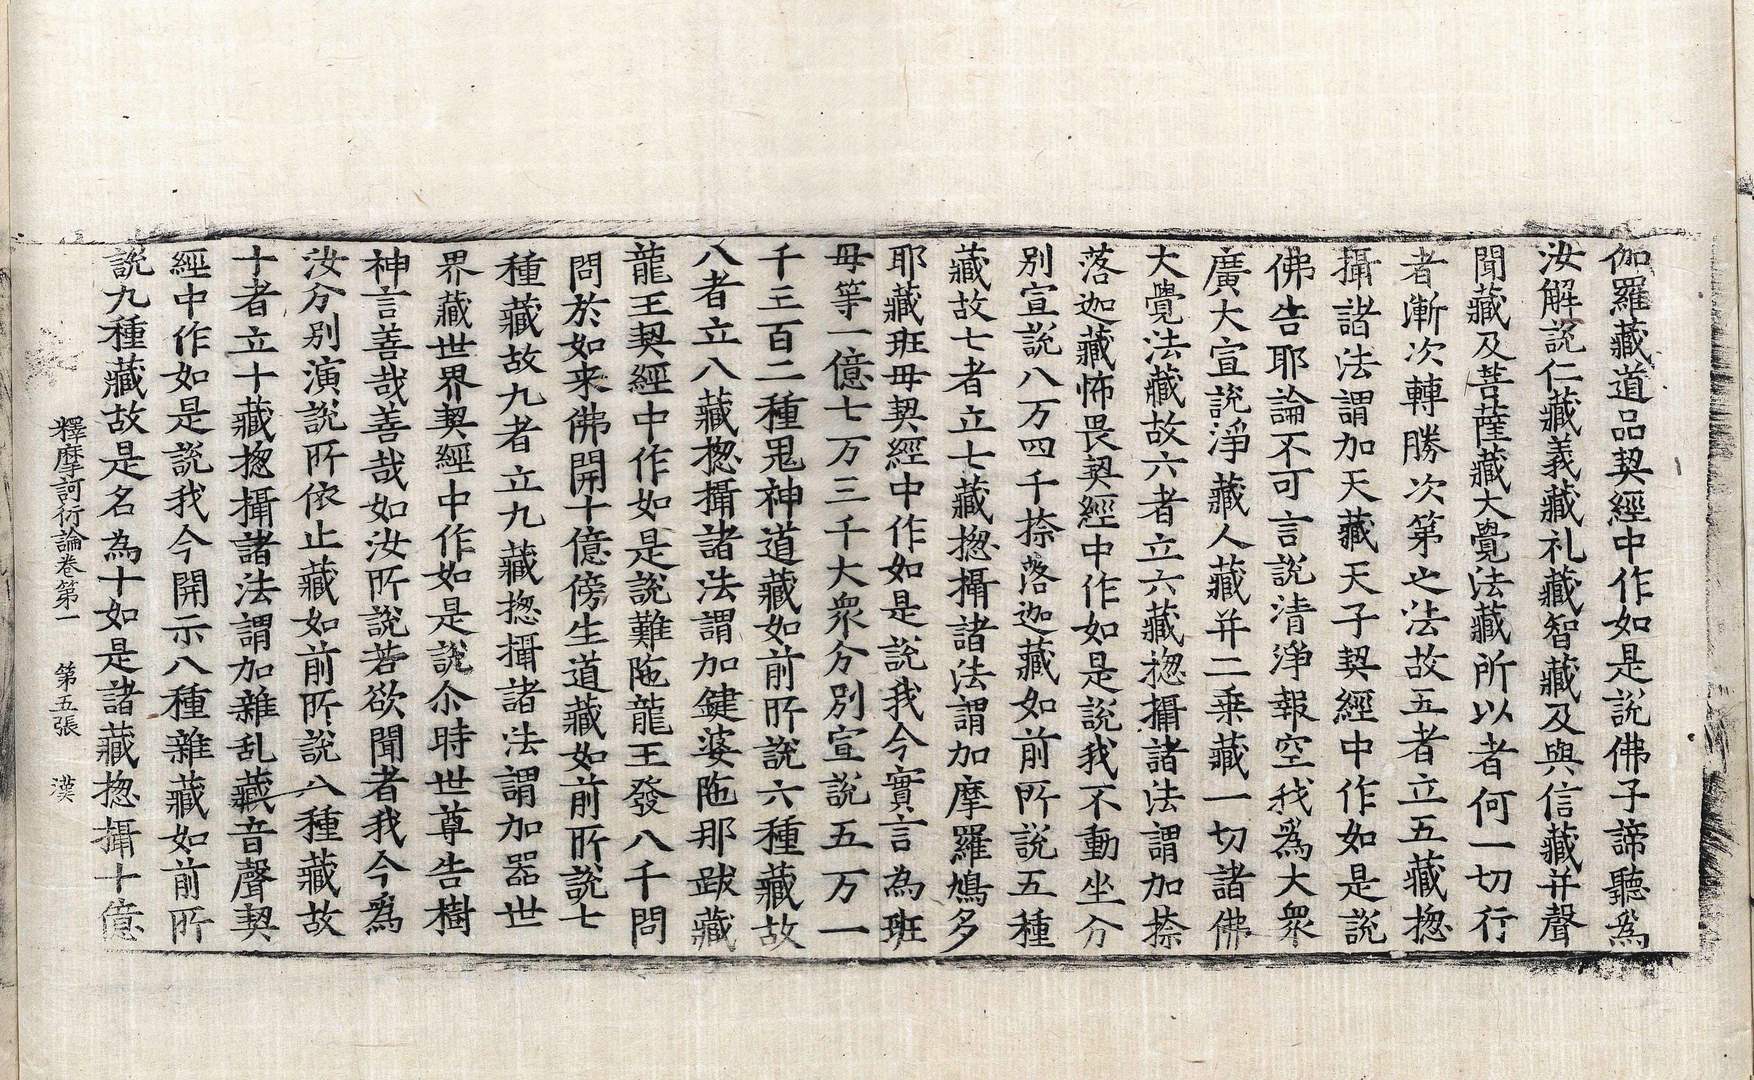 伽羅藏道品契經中作如是說佛子諦聽爲
汝解說仁藏義藏礼藏智藏及與信藏并聲
聞藏及菩薩藏大覺法藏所以者何一切行
者漸次轉勝次第之法故五者立五藏揔
攝諸法謂加天藏天子契經中作如是說
佛告耶論不可言說清淨報空我爲大衆
廣大宣說淨藏人藏并二乗藏一切諸佛
大覺法藏故六者立六藏揔攝諸法謂加捺
落迦藏怖畏契經中作如是說我不動坐分
別宣說八万四千捺落迦藏如前所說五種
藏故七者立七藏揔攝諸法謂加摩羅鳩多
耶藏班毋契經中作如是說我今實言為班
毋等一億七万三千大衆分別宣說五万一
千三百二種鬼神道藏如前所說六種藏故
八者立八藏揔攝諸法謂加鍵婆陁那跋藏
龍王契經中作如是說難陁龍王發八千問
問於如来佛開十億傍生道藏如前所說七
種藏故九者立九藏揔攝諸法謂加器世
界藏世界契經中作如是說尒時世尊告樹
神言善哉善哉如汝所說若欲聞者我今爲
汝分別演說所依止藏如前所說八種藏故
十者立十藏揔攝諸法謂加雜乱藏音聲契
經中作如是說我今開示八種雜藏如前所
說九種藏故是名為十如是諸藏揔攝十億
釋摩訶衍論卷第一　第五張　漢